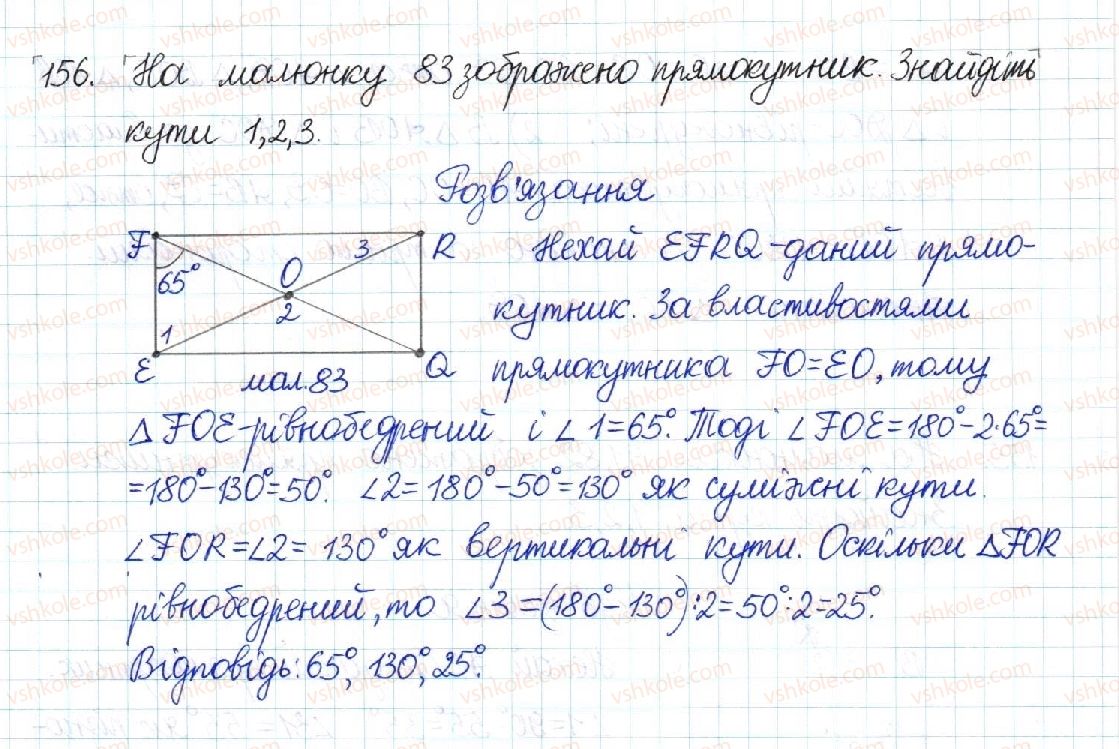 156. На малюнку 83 зображено прямокутник. Знайдіть
кути 1,2,3.
Розв'язання
F
R
65°
O
3
2
1
E
Q
мал.83
Нехай EFRQ - даний прямо-
кутник. За властивостями
прямокутника FO=EO, тому
△ FOE - рівнобедрений і ∠ 1 = 65°. Тоді ∠ FOE = 180° - 2·65° =
= 180° - 130° = 50°. ∠2 = 180° - 50° = 130° як суміжні кути.
∠FOR = ∠2 = 130° як вертикальні кути. Оскільки △FOR
рівнобедрений, то ∠3 = (180° - 130°):2 = 50°:2 = 25°.
Відповідь: 65°, 130°, 25°.
vshkole.com